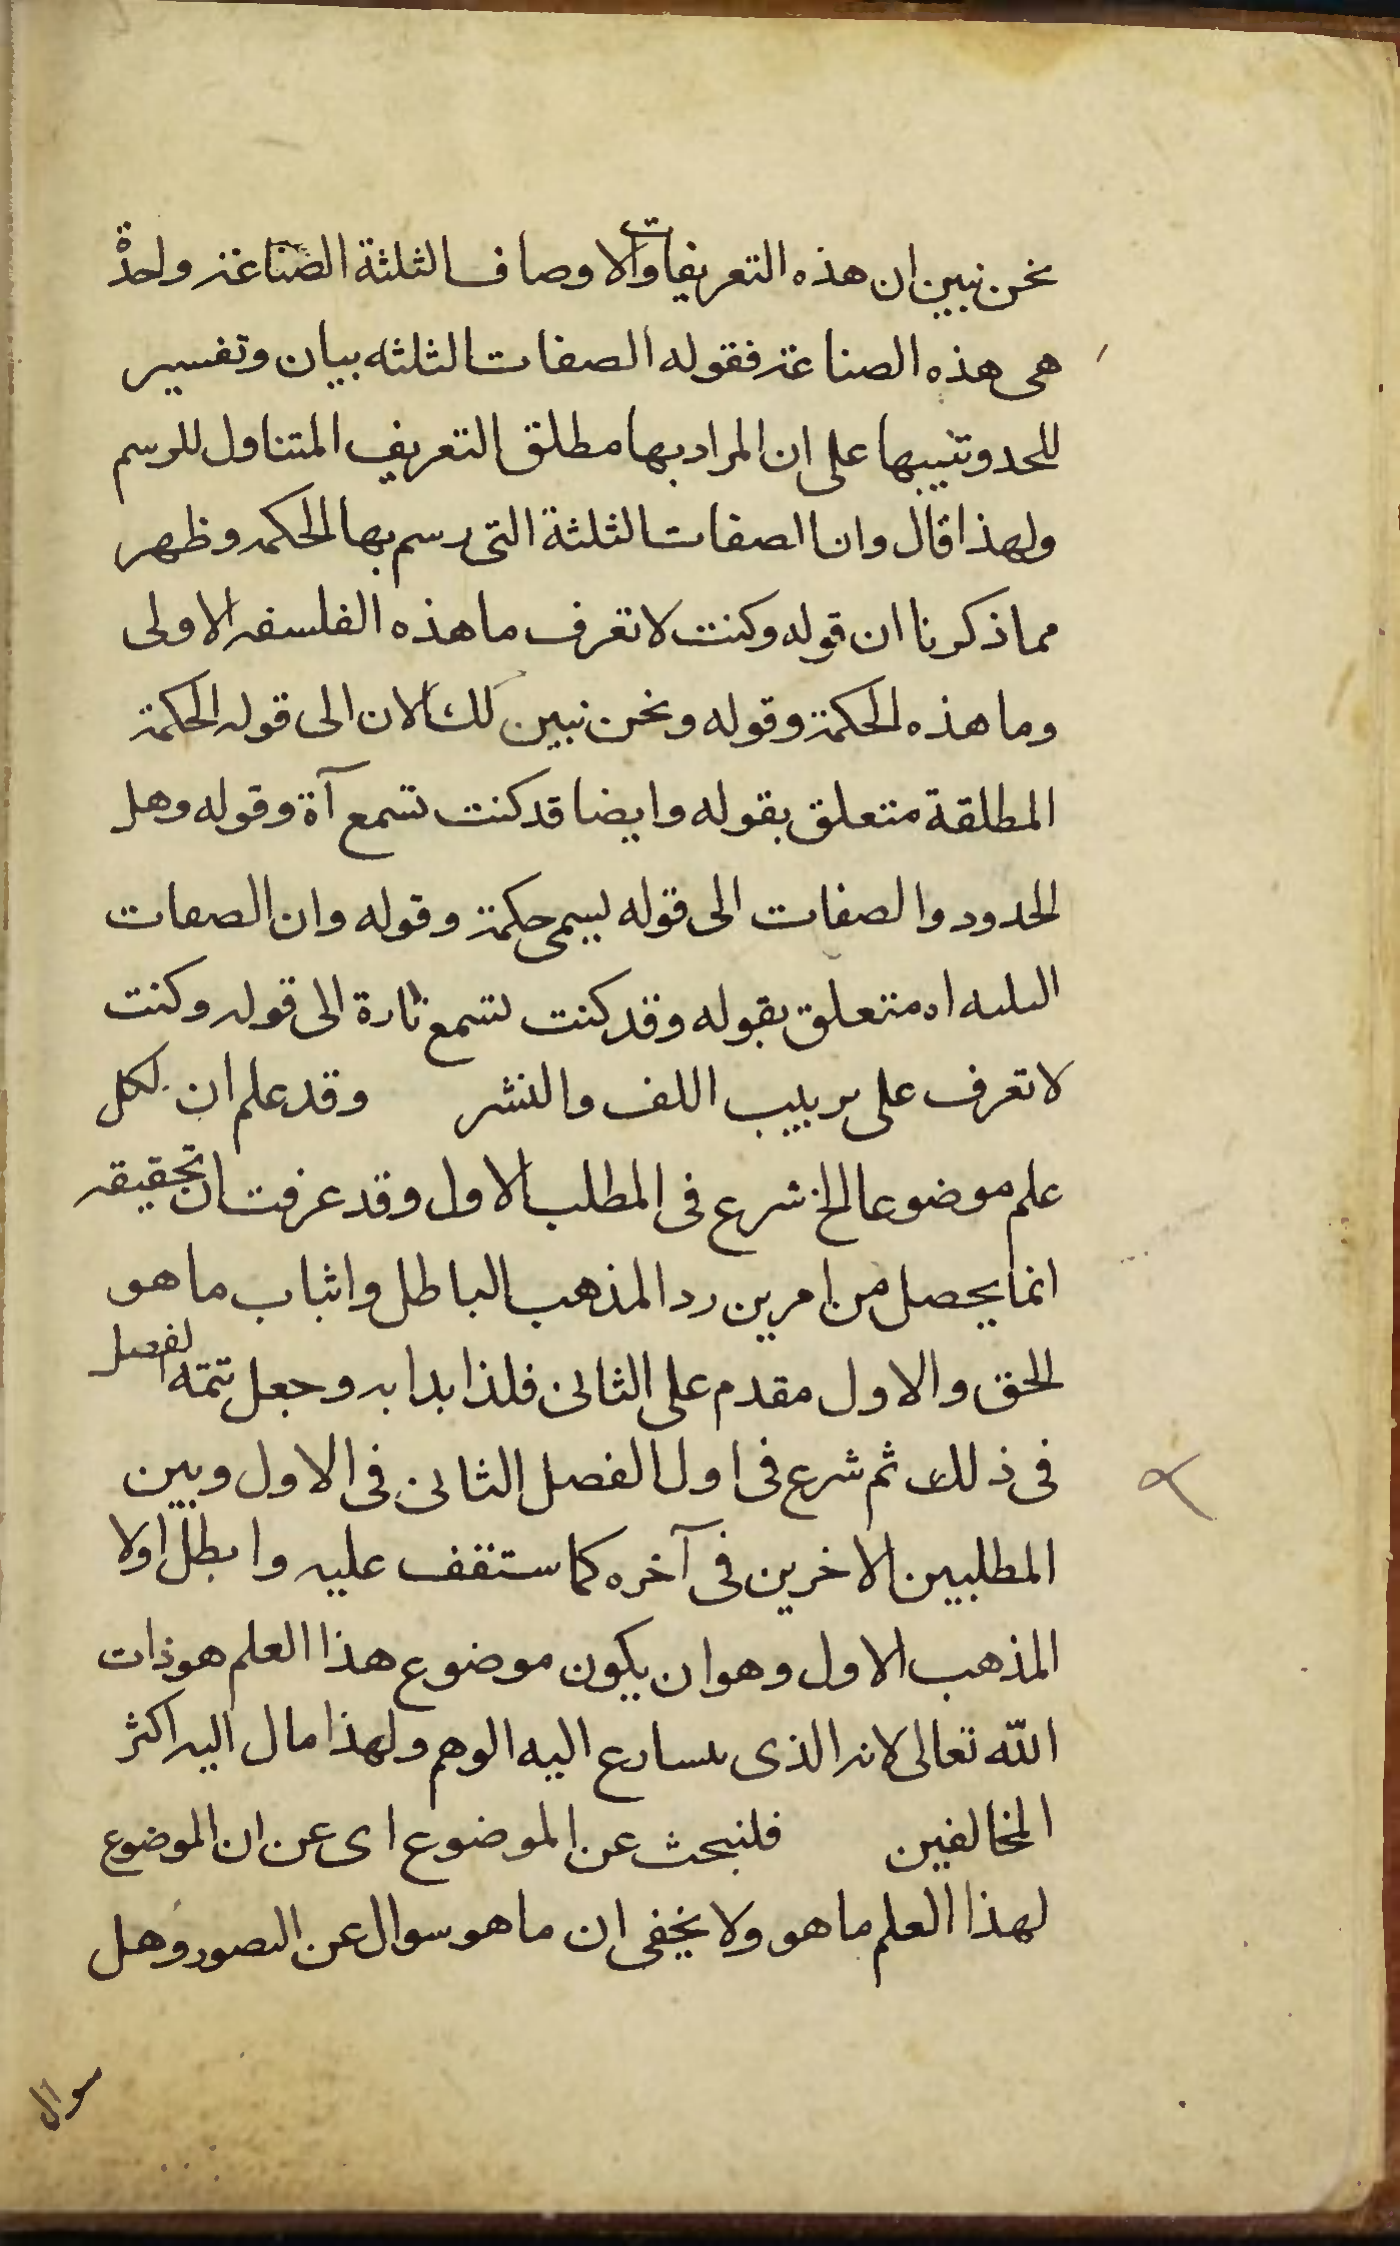 نحن نبين ان هذه التعريفات والاوصاف الثلثة الصناعة واحدة
هى هذه الصناعة فقوله الصفات الثلثه بيان وتفسير
للحد وتنبيها على ان المراد بها مطلق التعريف المتناول للرسم
ولهذا قال وان الصفات الثلثة التى رسم بها الحكمه وظهر
مما ذكرنا ان قوله وكنت لا تعرف ما هذه الفلسفه الاولى
وما هذه الحكمة وقوله ونحن نبين لك الان الى قوله الحكمة
المطلقة متعلق بقوله وايضا قد كنت تسمع آة وقوله وهل
الحدود والصفات الى قوله يسمى حكمة وقوله وان الصفات
الثلثه اه متعلق بقوله وقد كنت تسمع تارة الى قوله وكنت
لا تعرف على ترتيب اللف والنشر وقد علم ان لكل
علم موضوعا الخ شرع فى المطلب الاول وقد عرفت ان تحقيقه
انما يحصل من امرين رد المذهب الباطل واثبات ما هو
الحق والاول مقدم على الثانى فلذا بدا به وجعل تتمه الفصل
فى ذلك ثم شرع فى اول الفصل الثانى فى الاول وبين
المطلبين الاخرين فى آخره كما ستقف عليه وابطل اولا
المذهب الاول وهو ان يكون موضوع هذا العلم هو ذات
الله تعالى لانه الذى يسارع اليه الوهم ولهذا مال اليه اكثر
المخالفين فلنبحث عن الموضوع اى عن ان الموضوع
لهذا العلم ما هو ولا يخفى ان ما هو سوال عن التصور وهل
سوال